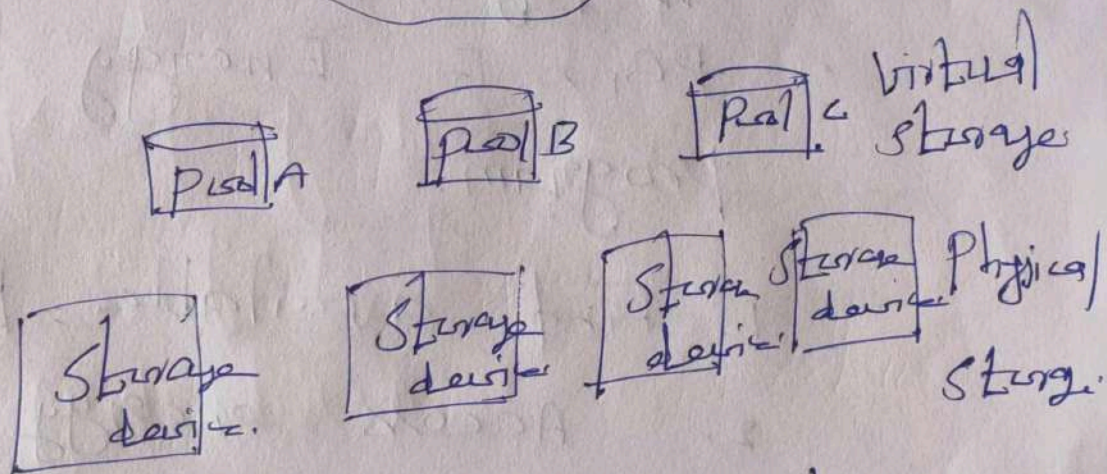 Pool A
Pool B
Pool C
Virtual
Storage
Storage
device.
Storage
device
Storage
device.
Storage
device.
Physical
Storage.